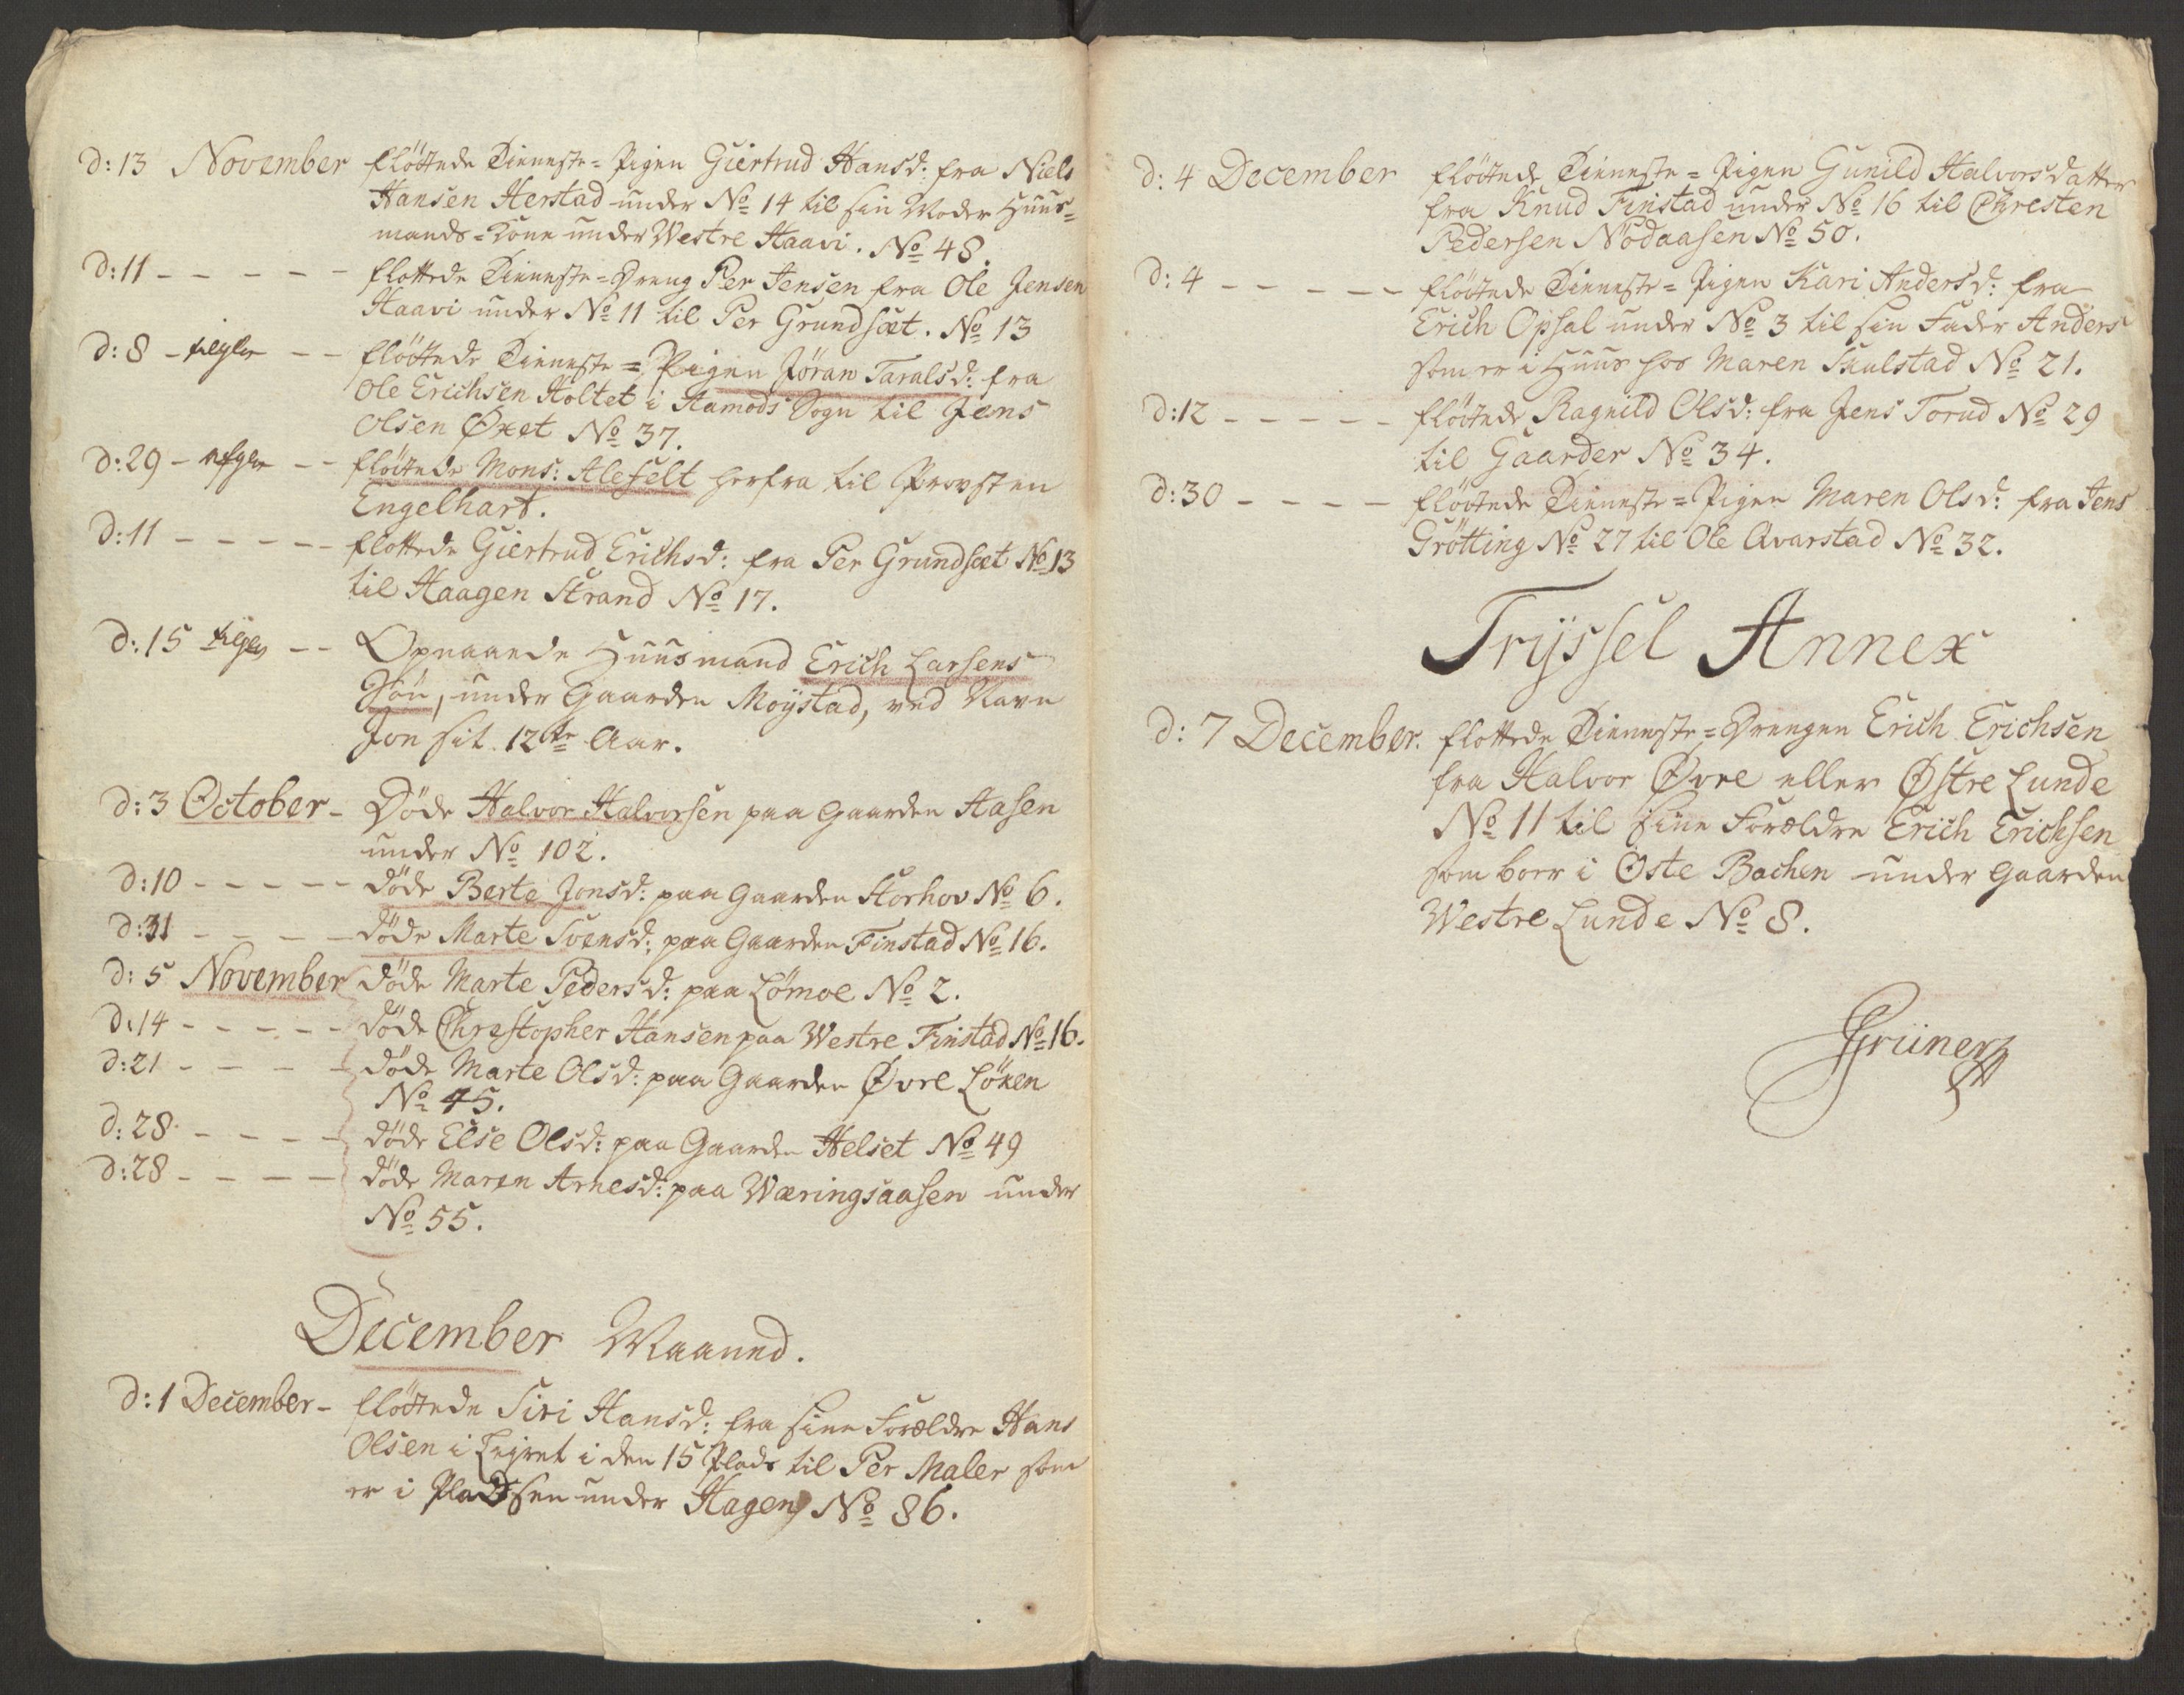 d: 13 November fløttede Tieneste=Pigen Giertrud Hansd: fra Niels
Hansen Herstad under No 14 til sin Moder Huus=
mands=Kone under Westre Haavi. No 48.
d: 11 - - - - - flottede Tieneste=Dreng Per Jensen fra Ole Jensen
Haavi under No 11 til Per Grundsæt. No 13
d: 8 - tilgler - - fløttede Tieneste=Pigen Jøran Taralsd: fra
Ole Erichsen Holtet i Aamods Sogn til Jens
Olsen Øxet No 37.
d: 29 - afgler - - fløttede Mons: Alefelt herfra til Provsten
Engelhart.
d: 11 - - - - - flottede Giertrud Erichsd: fra Per Grundsæt No 13
til Haagen Strand No 17.
d: 15 tilgler - - Opnaaede Huusmand Erich Larsens
Søn, under Gaarden Moystad, ved Navn
Jon sit 12te Aar.
d: 3 October - Døde Halvor Halvorsen paa Gaarden Aasen
under No 102.
d: 10 - - - - - døde Berte Jonsd: paa Gaarden Storhov No 6.
d: 31 - - - - - døde Marte Svensd: paa Gaarden Finstad No 16.
d: 5 November døde Marte Pedersd: paa Lømoe No 2.
d: 14 - - - - - døde Christopher Hansen paa Westre Finstad No 16.
d: 21 - - - - døde Marte Olsd: paa Gaarden Øvre Løken
No 45.
d: 28 - - - - døde Else Olsd: paa Gaarden Helset No 49
d: 28 - - - - døde Maren Arnesd: paa Wæringsaasen under
No 55.
December Maaned.
d: 1 December - fløttede Siri Hansd: fra sine Forældre Hans
Olsen i Leyret i den 15 Plads til Per Maler som
er i Pladsen under Hagen No 86.
d: 4 December fløttede Tieneste=Pigen Gunild Halvorsdatter
fra Knud Finstad under No 16 til Chresten
Pedersen Nødaasen No 50.
d: 4 - - - - - fløttede Tieneste=Pigen Kari Andersd: fra
Erich Opsal under No 3 til sin Fader Anders
som er i Huus hos Maren Skulstad No 21.
d: 12 - - - - - fløttede Ragnild Olsd: fra Jens Torud No 29
til Gaarder No 34.
d: 30 - - - - fløttede Tieneste=Pigen Maren Olsd: fra Jens
Grøtting No 27 til Ole Qvarstad No 32.
Tryssel Annex
d: 7 December. flottede Tieneste=Drengen Erich Erichsen
fra Halvor Øvre eller Østre Lunde
No 11 til sine Forældre Erich Erichsen
som boer i Oste Bachen under Gaarden
Westre Lunde No 8.
Grüner